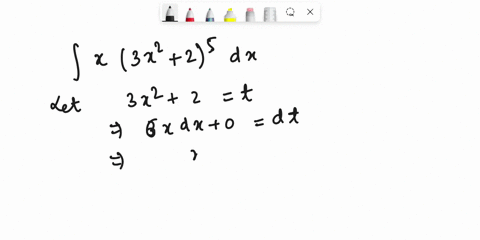 ∫ x (3x² + 2)⁵ dx
Let 3x² + 2 = t
⇒ 6x dx + 0 = dt
⇒ x